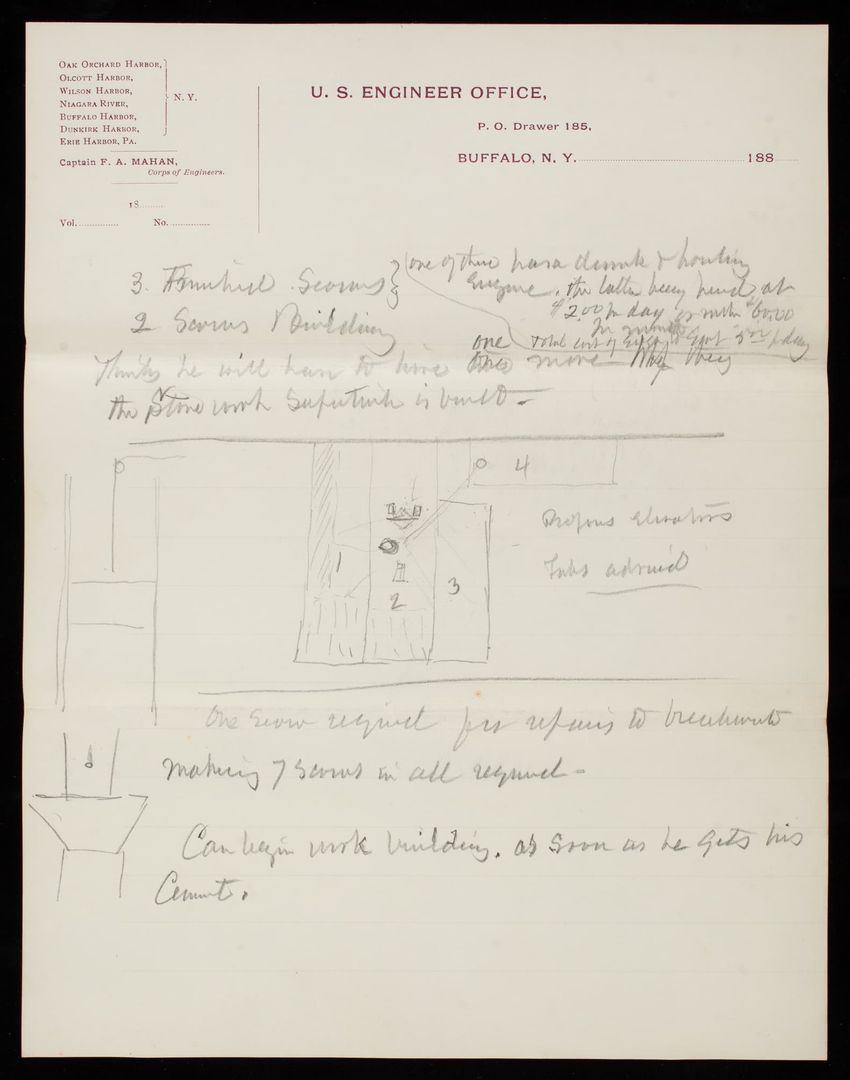 OAK ORCHARD HARBOR,
OLCOTT HARBOR,
WILSON HARBOR,
NIAGARA RIVER,
BUFFALO HARBOR,
DUNKIRK HARBOR,
ERIE HARBOR, PA.
N. Y.
Captain F. A. MAHAN,
Corps of Engineers.
18
Vol. No.
U. S. ENGINEER OFFICE,
P. O. Drawer 185,
BUFFALO, N. Y. 188
3. Finished Scows
(one of these has a derrick & hoisting
Engine, the latter being hired at
$2.00 per day or rather $60.00
per month
2 Scows Building
one total cost of to Govt 5 00 p day
Thinks he will have to hire one more
the Stone work Superstructure is built -
4
Proposes elevators
Tubs advised
1
2
3
One Scow required for repairs to breakwater
Making 7 Scows in all required -
8
Can begin work building, as soon as he gets his
Cement.